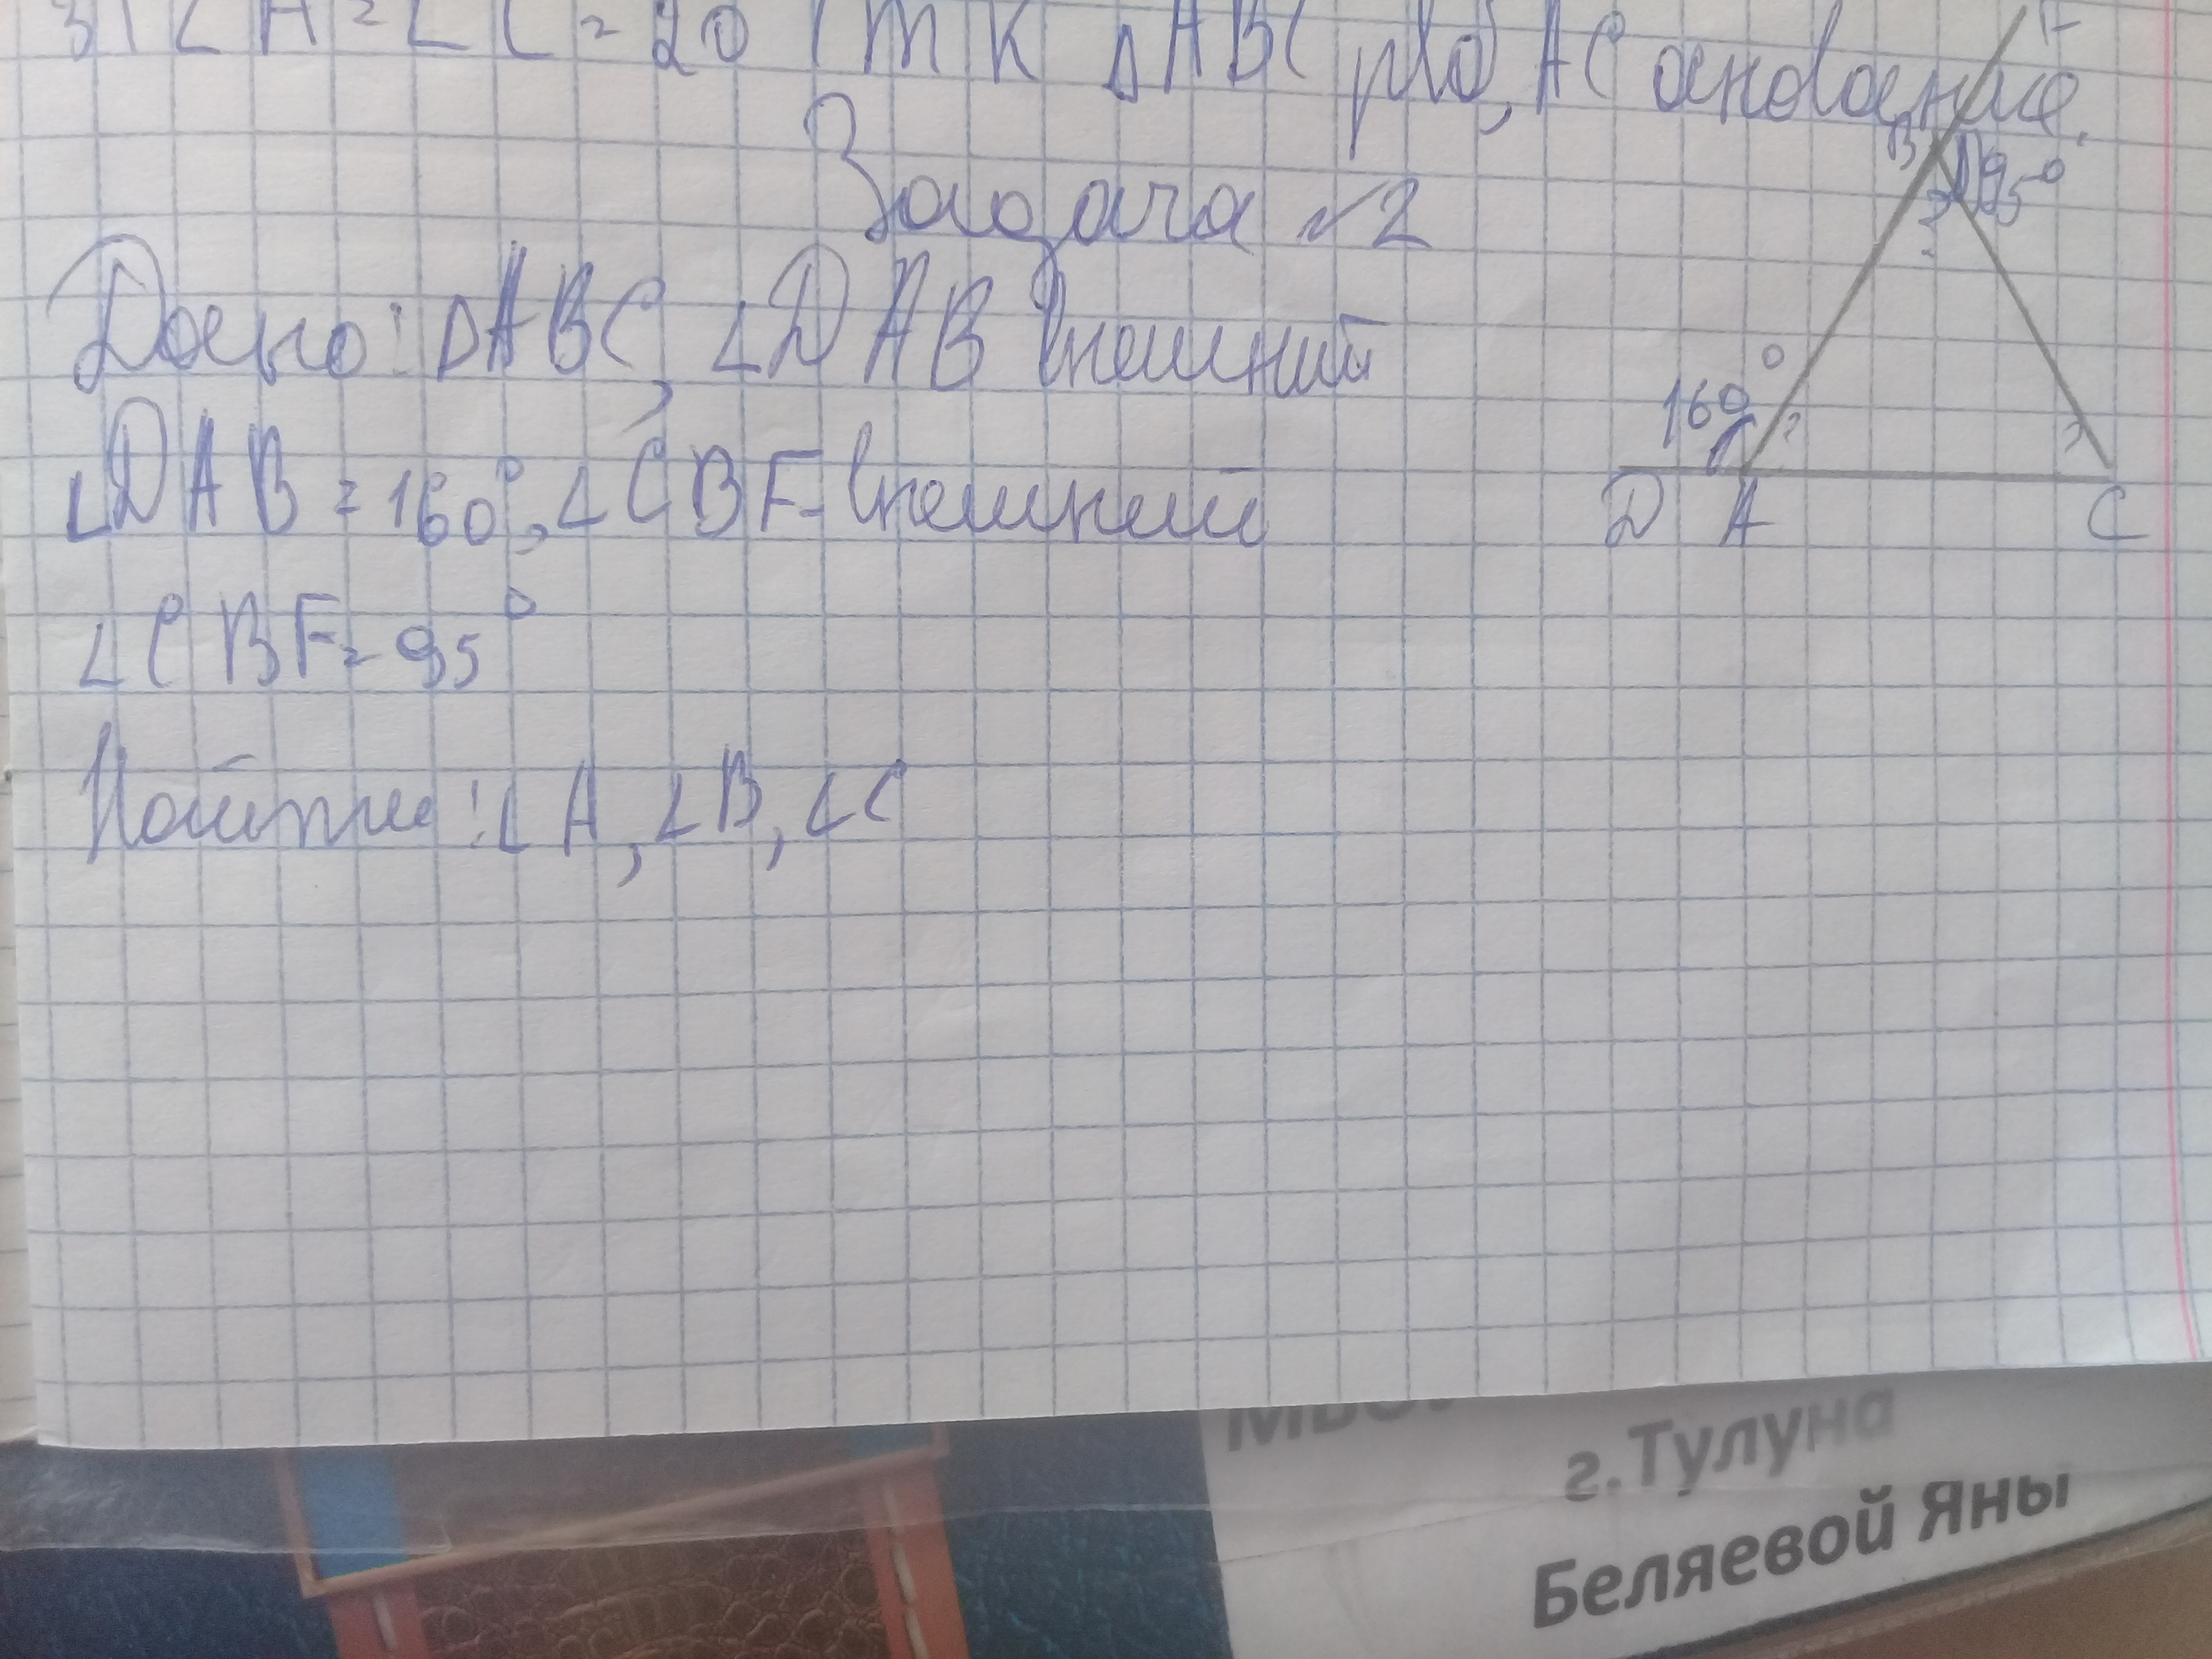 3) ∠A=∠C=20 (тк ΔABC р/б, AC основание.
Задача №2
Дано: ΔABC, ∠DAB внешний
∠DAB=160°, ∠CBF-внешний
∠CBF=95°
Найти: ∠A, ∠B, ∠C
F
B
95°
?
160°
?
?
D A C
г.Тулуна
Беляевой Яны